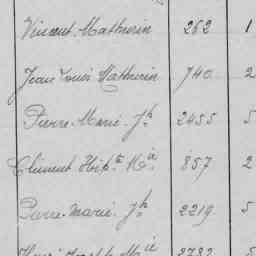 Vincent Mathurin 262 1
Jean Louis Mathurin 740 2
Pierre Marie Jh 2455 5
Clément Hipte Mie 857 2
Pierre Marie Jh 2219 5
Henri Joseph Mie 2782 5